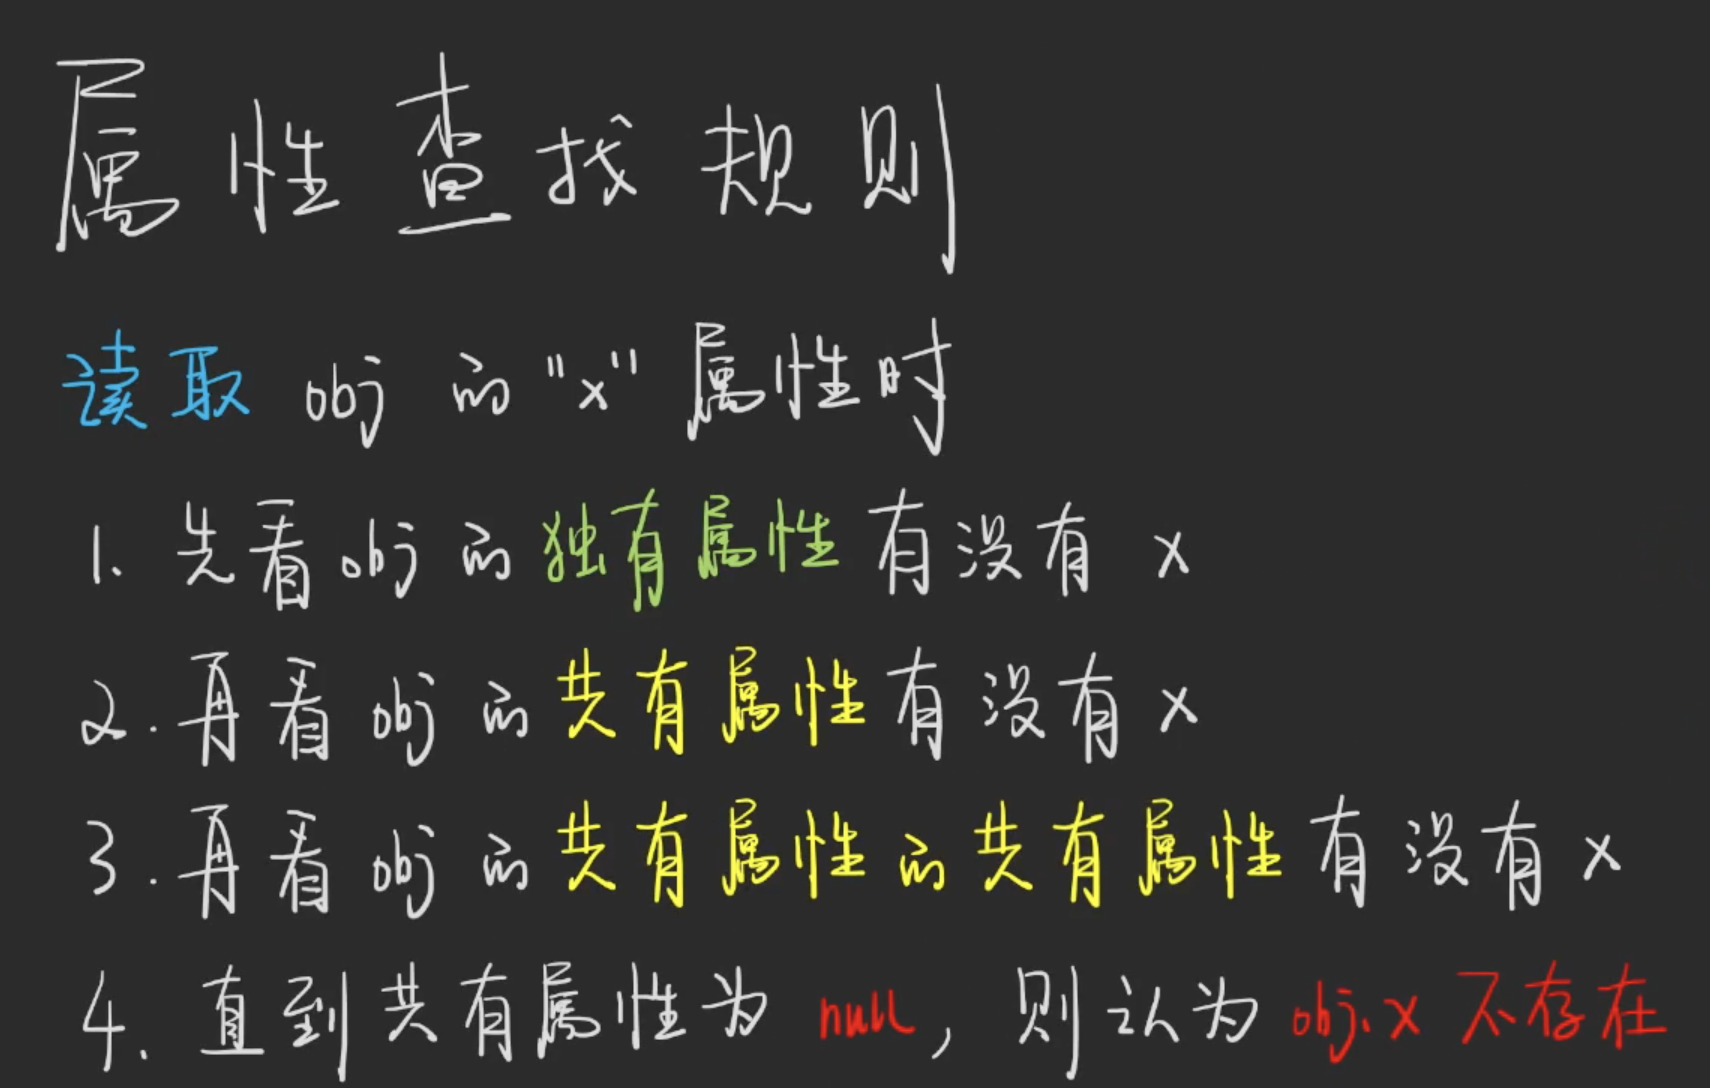 属性查找规则
读取 obj 的"x"属性时
1. 先看obj的独有属性有没有 x
2. 再看obj的共有属性有没有 x
3. 再看obj的共有属性的共有属性有没有 x
4. 直到共有属性为 null, 则认为 obj.x 不存在